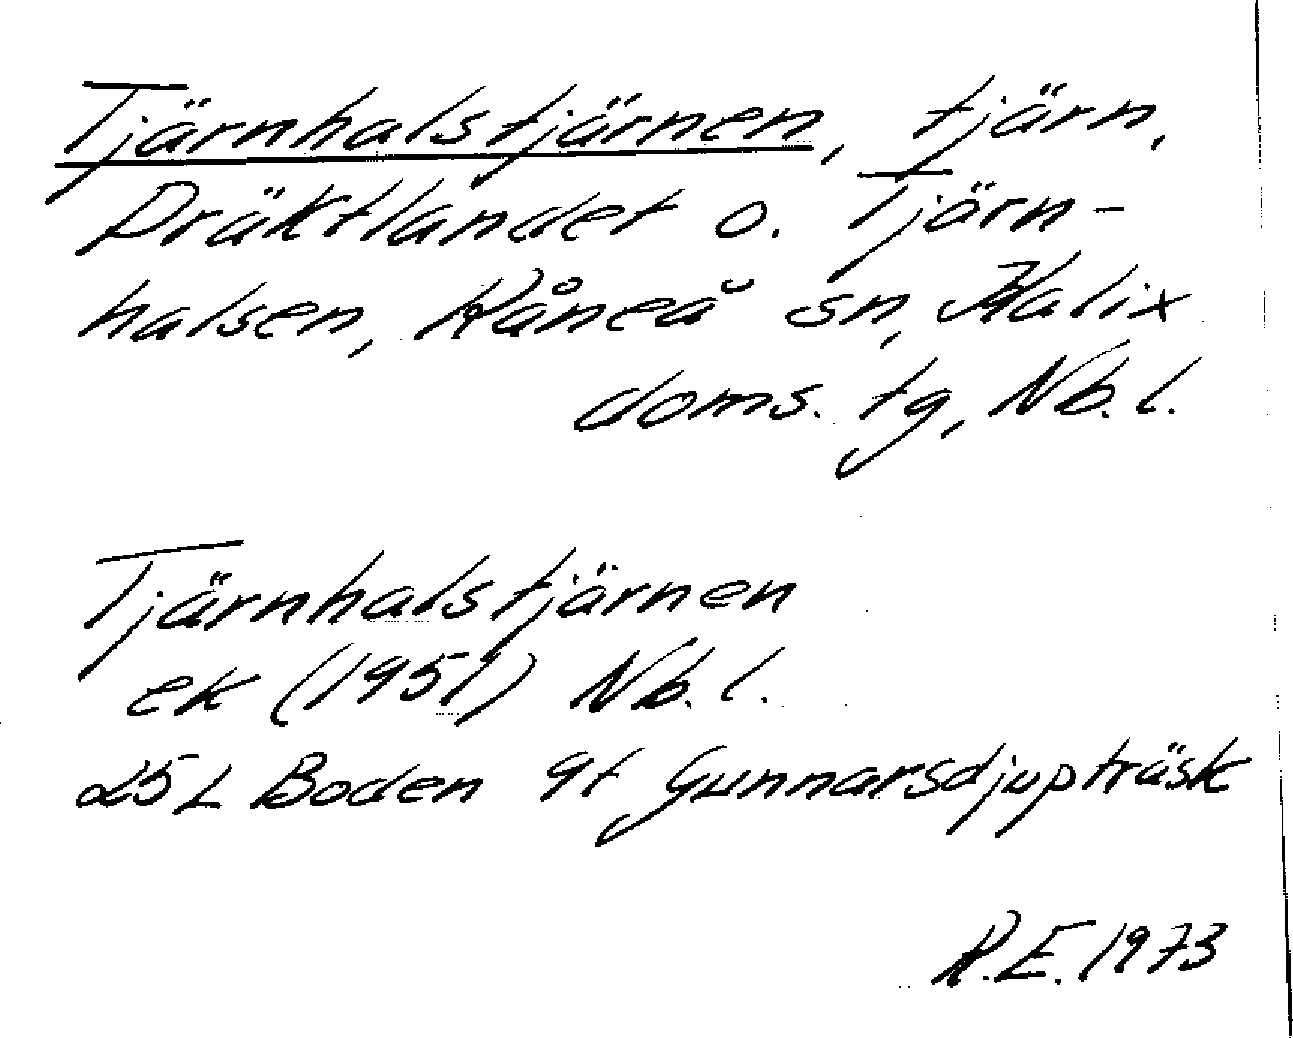 Tjärnhalstjärnen, tjärn,
Präktlandet o. Tjärn-
halsen, Råneå sn, Kalix
doms. tg, Nb. l.
Tjärnhalstjärnen
ek (1951) Nb. l.
25 L Boden 9f Gunnarsdjupträsk
R.E. 1973